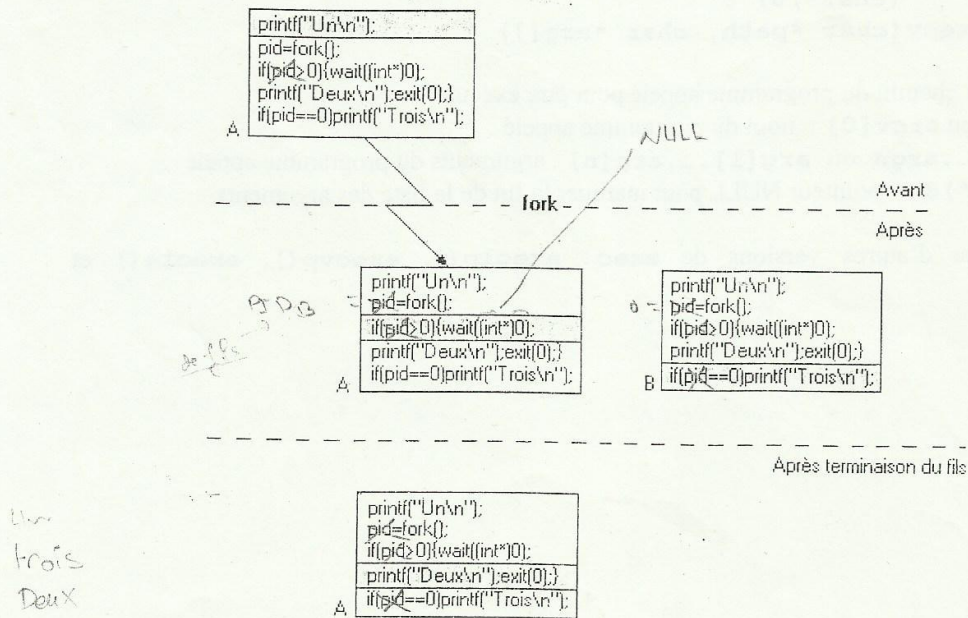 printf("Un\n");
pid=fork();
if(pid>0){wait((int*)0);
printf("Deux\n");exit(0);}
if(pid==0)printf("Trois\n");
A
NULL
Avant
fork
Après
printf("Un\n");
pid=fork();
if(pid>0){wait((int*)0);
printf("Deux\n");exit(0);}
if(pid==0)printf("Trois\n");
A
0 =
printf("Un\n");
pid=fork();
if(pid>0){wait((int*)0);
printf("Deux\n");exit(0);}
if(pid==0)printf("Trois\n");
B
Après terminaison du fils
printf("Un\n");
pid=fork();
if(pid>0){wait((int*)0);
printf("Deux\n");exit(0);}
if(pid==0)printf("Trois\n");
A
Un
trois
Deux